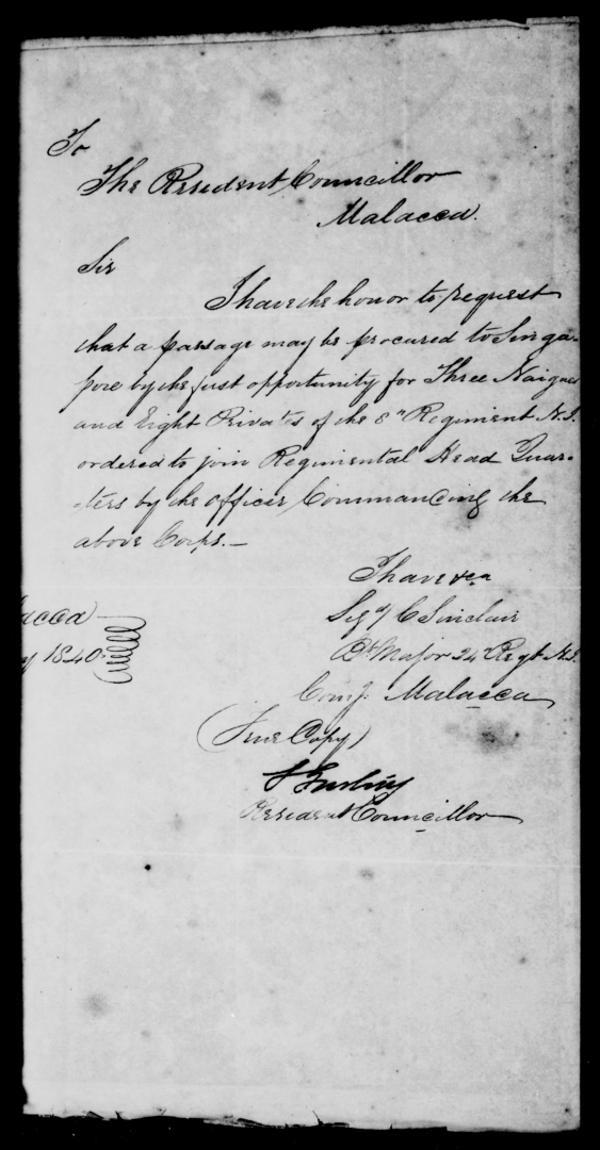 To
The Resident Councillor
Malacca.
Sir
I have the honor to request
that a passage may be procured to Singa-
pore by the first opportunity for Three Naigues
and Eight Privates of the 8th Regiment N.I.
ordered to join Regimental Head Quar-
-ters by the officer Commanding the
above Corps.—
I have &ca
Sigd C Sinclair
Bt Major 24th Regt N.I.
Comg. Malacca
acca
y 1840
(True Copy)
Resident Councillor